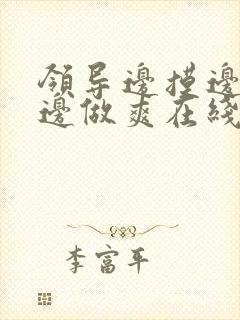 領导邊摸邊
邊做爽在綫
李富平